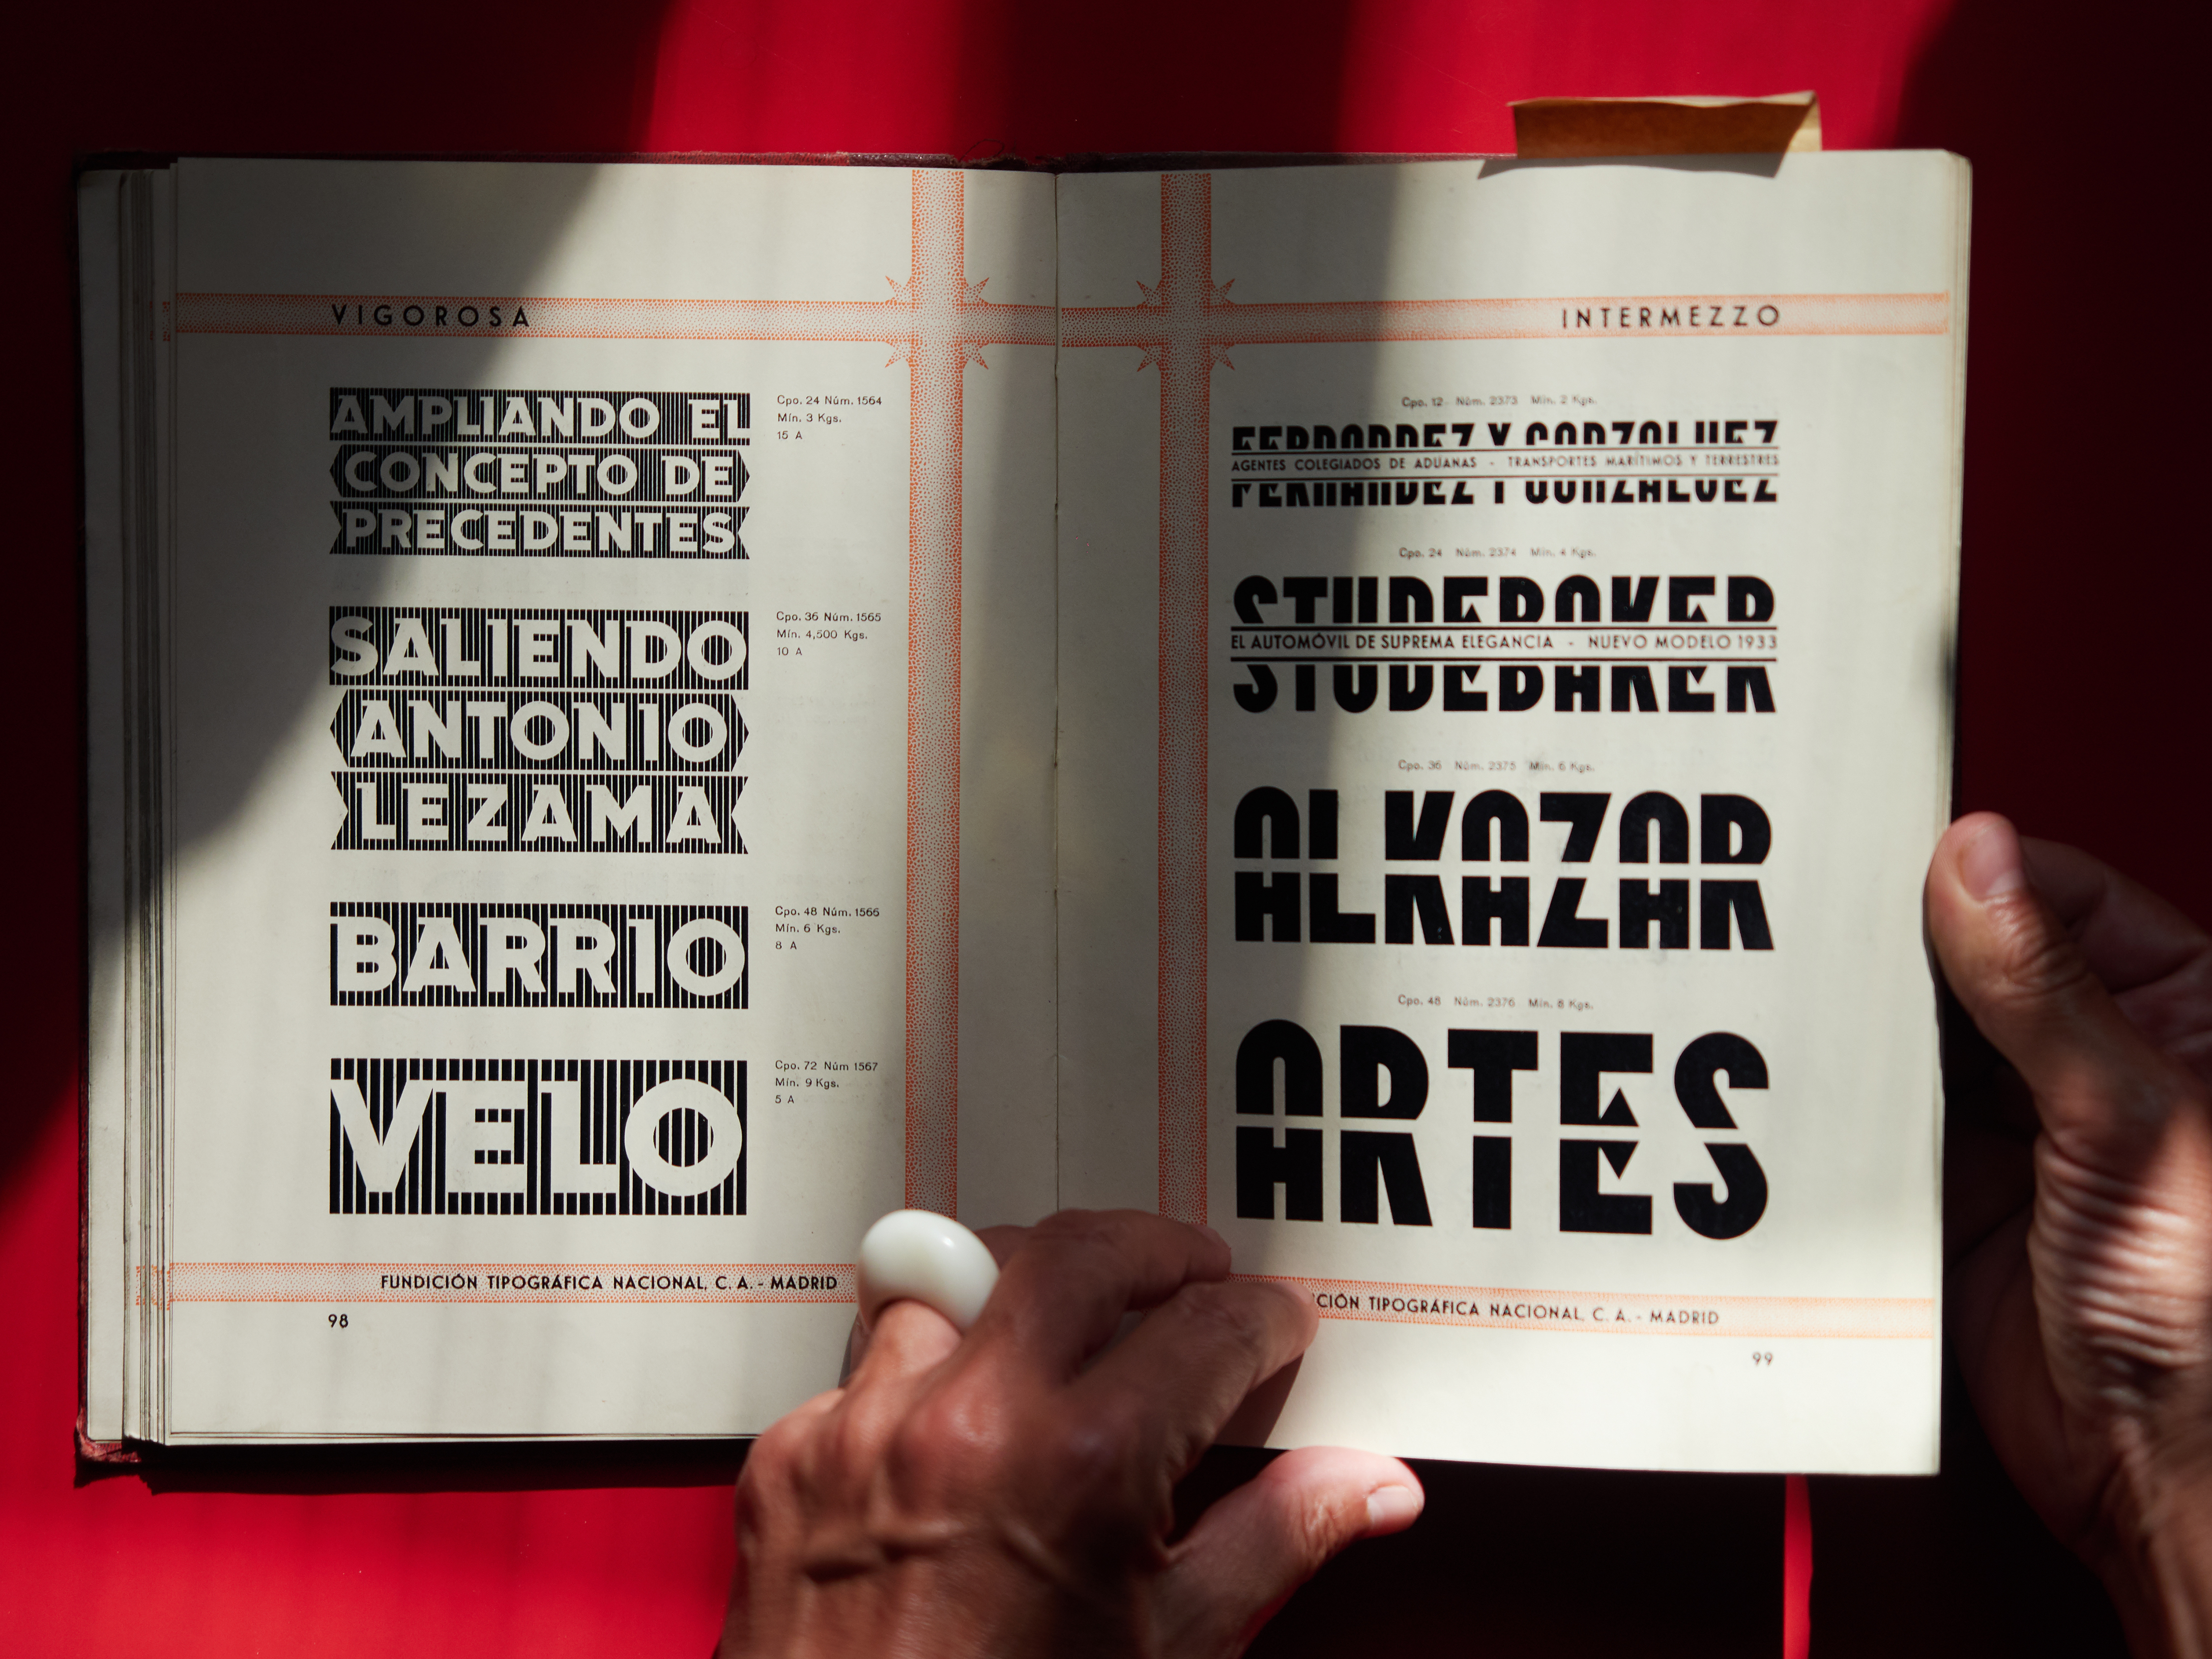 VIGOROSA
AMPLIANDO EL
CONCEPTO DE
PRECEDENTES
Cpo. 24 Núm. 1564
Mín. 3 Kgs.
15 A
SALIENDO
ANTONIO
LEZAMA
Cpo. 36 Núm. 1565
Mín. 4,500 Kgs.
10 A
BARRIO
Cpo. 48 Núm. 1566
Mín. 6 Kgs.
8 A
VELO
Cpo. 72 Núm 1567
Mín. 9 Kgs.
5 A
FUNDICIÓN TIPOGRÁFICA NACIONAL, C. A. - MADRID
98
INTERMEZZO
Cpo. 12 Núm. 2373 Mín. 2 Kgs.
FERNANDEZ Y GONZALUEZ
AGENTES COLEGIADOS DE ADUANAS - TRANSPORTES MARÍTIMOS Y TERRESTRES
Cpo. 24 Núm. 2374 Mín. 4 Kgs.
STUDEBAKER
EL AUTOMÓVIL DE SUPREMA ELEGANCIA - NUEVO MODELO 1933
Cpo. 36 Núm. 2375 Mín. 6 Kgs.
ALKAZAR
Cpo. 48 Núm. 2376 Mín. 8 Kgs.
ARTES
CIÓN TIPOGRÁFICA NACIONAL, C. A. - MADRID
99